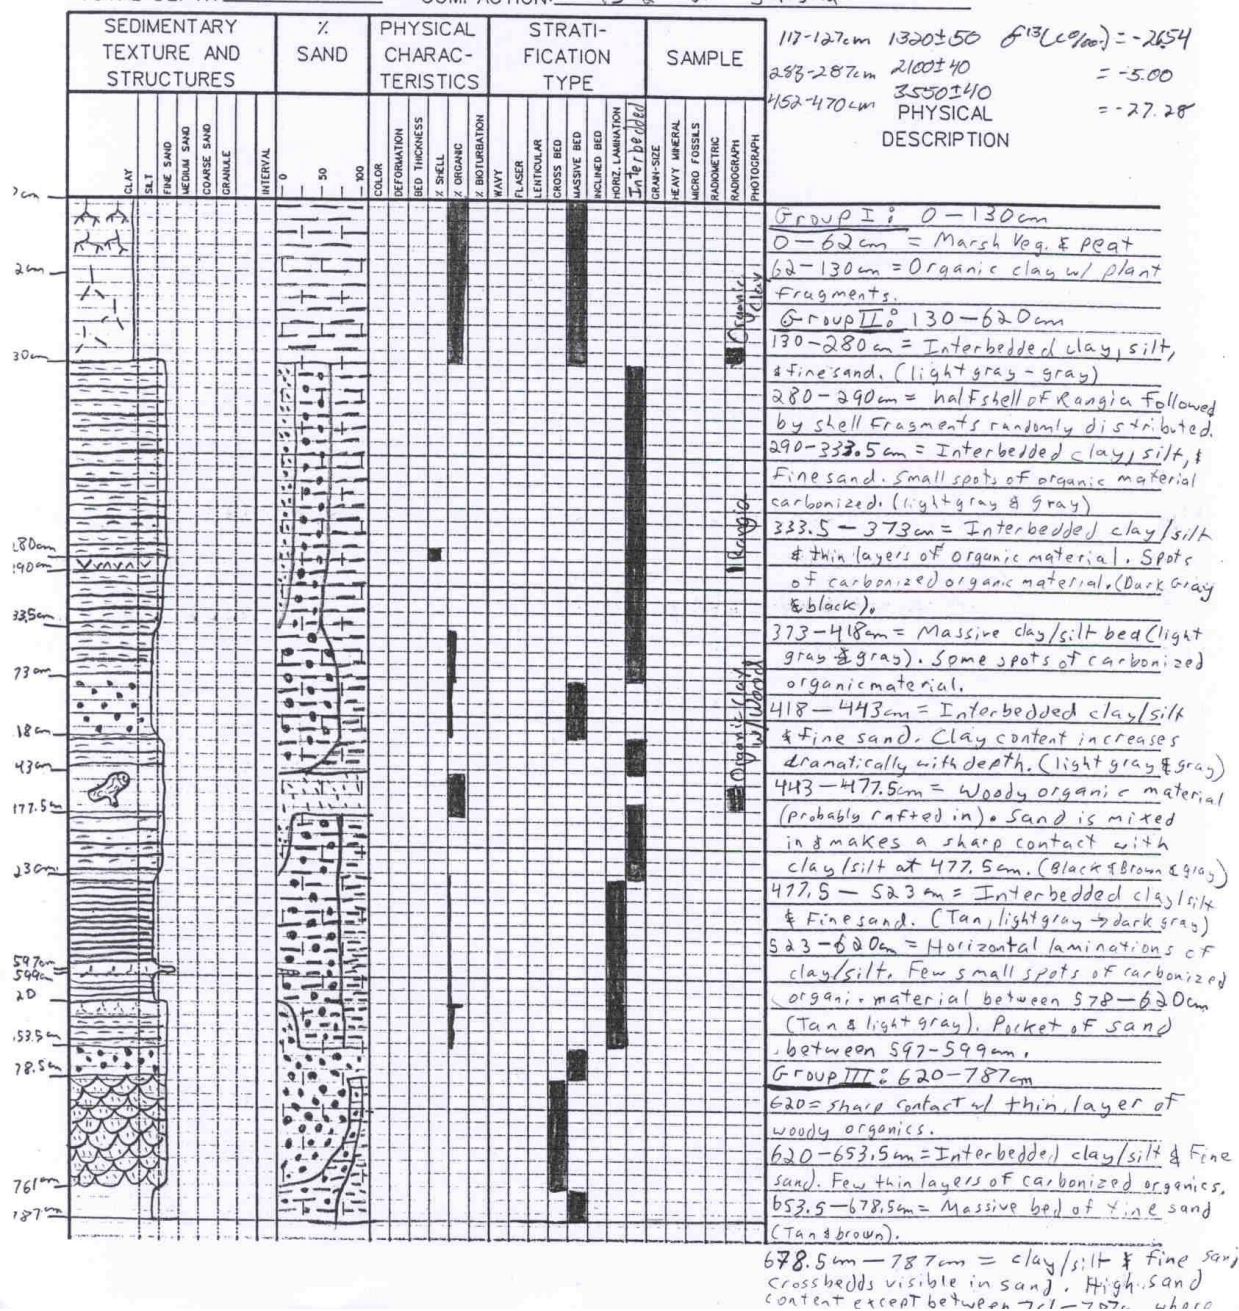 COMPACTION:
SEDIMENTARY TEXTURE AND STRUCTURES
% SAND
PHYSICAL CHARAC-TERISTICS
STRATI-FICATION TYPE
SAMPLE
117-127cm 1320±50 δ13(c‰) = -2654
283-287cm 2100±40 = -5.00
452-470cm 3550±40 = -27.28
PHYSICAL DESCRIPTION
CLAY
SILT
FINE SAND
MEDIUM SAND
COARSE SAND
GRANULE
INTERVAL
0
50
100
COLOR
DEFORMATION
BED THICKNESS
% SHELL
% ORGANIC
% BIOTURBATION
WAVY
FLASER
LENTICULAR
CROSS BED
MASSIVE BED
INCLINED BED
HORIZ. LAMINATION
Interbedded
GRAIN-SIZE
HEAVY MINERAL
MICRO FOSSILS
RADIOMETRIC
RADIOGRAPH
PHOTOGRAPH
cm
2cm
30cm
80cm
90cm
33.5cm
73cm
18cm
43cm
477.5cm
23cm
597cm
599cm
20
53.5cm
78.5cm
761cm
787cm
Organic Clay
Rangia
Organic Clay w/ Wood
Group I: 0-130cm
0-62cm = Marsh Veg. & Peat
62-130cm = Organic clay w/ plant
fragments.
Group II: 130-620cm
130-280cm = Interbedded clay, silt,
& fine sand. (light gray - gray)
280-290cm = half shell of Rangia followed
by shell fragments randomly distributed.
290-333.5cm = Interbedded clay, silt, &
Fine sand. Small spots of organic material
carbonized. (light gray & Gray)
333.5-373cm = Interbedded clay/silt
& thin layers of organic material. Spots
of carbonized organic material. (Dark Gray
& black).
373-418cm = Massive clay/silt bed (light
gray & gray). Some spots of carbonized
organic material.
418-443cm = Interbedded clay/silt
& fine sand. Clay content increases
dramatically with depth. (light gray & gray)
443-477.5cm = Woody organic material
(probably rafted in). Sand is mixed
in & makes a sharp contact with
clay/silt at 477.5cm. (Black & Brown & gray)
477.5-523cm = Interbedded clay/silt
& Fine sand. (Tan, light gray → dark gray)
523-620cm = Horizontal laminations of
clay/silt. Few small spots of carbonized
organic material between 578-620cm
(Tan & light gray). Pocket of sand
between 597-599cm.
Group III: 620-787cm
620 = sharp contact w/ thin layer of
woody organics.
620-653.5cm = Interbedded clay/silt & Fine
sand. Few thin layers of carbonized organics.
653.5-678.5cm = Massive bed of fine sand
(Tan & brown).
678.5cm-787cm = clay/silt & fine sand
Crossbedds visible in sand. High sand
content except between 761-787cm where